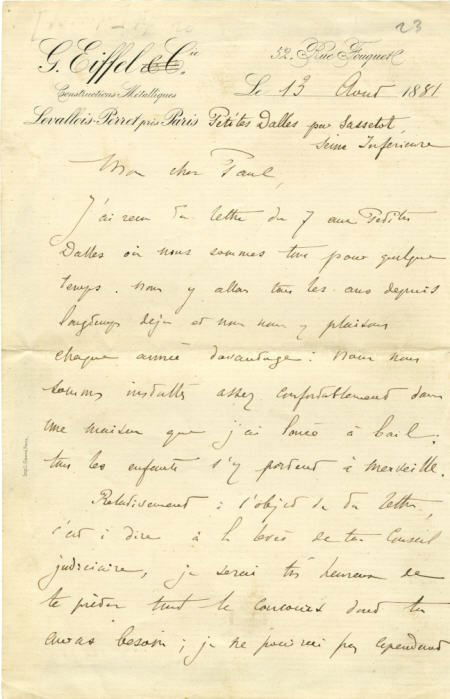 23
G. Eiffel & Cie.
52, Rue Fouquet
Constructions Métalliques
Le 13 Aout 1881
Levallois-Perret près Paris
Petites Dalles par Sassetot,
Seine Inférieure
Mon cher Paul,
J'ai reçu ta lettre du 7 aux Petites
Dalles où nous sommes tous pour quelque
temps. Nous y allons tous les ans depuis
longtemps déjà et nous nous y plaisons
chaque année davantage : Nous nous
sommes installés assez confortablement dans
une maison que j'ai louée à bail.
tous les enfants s'y portent à merveille.
Relativement à l'objet de ta lettre,
c'est à dire à la levée de ton Conseil
judiciaire, je serai très heureux de
te prêter tout le concours dont tu
auras besoin ; je ne pourrai pas cependant